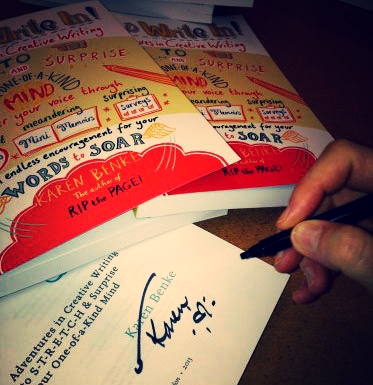 Write In!
in Creative Writing
TO
AND SURPRISE
ONE-OF-A-KIND
MIND
your voice through
meandering
surprising
Mini Memoirs
surveys
endless encouragement for your
WORDS to SOAR
KAREN BENKE
The author of
RIP the PAGE!
Write In!
in Creative Writing
TO
AND SURPRISE
ONE-OF-A-KIND
MIND
your voice through
meandering
surprising
Mini Memoirs
surveys
encouragement for your
to SOAR
BENKE
author of
the PAGE!
Adventures in Creative Writing
to S-T-R-E-T-C-H & Surprise
Your One-of-a-Kind Mind
Karen Benke
Karen
2013